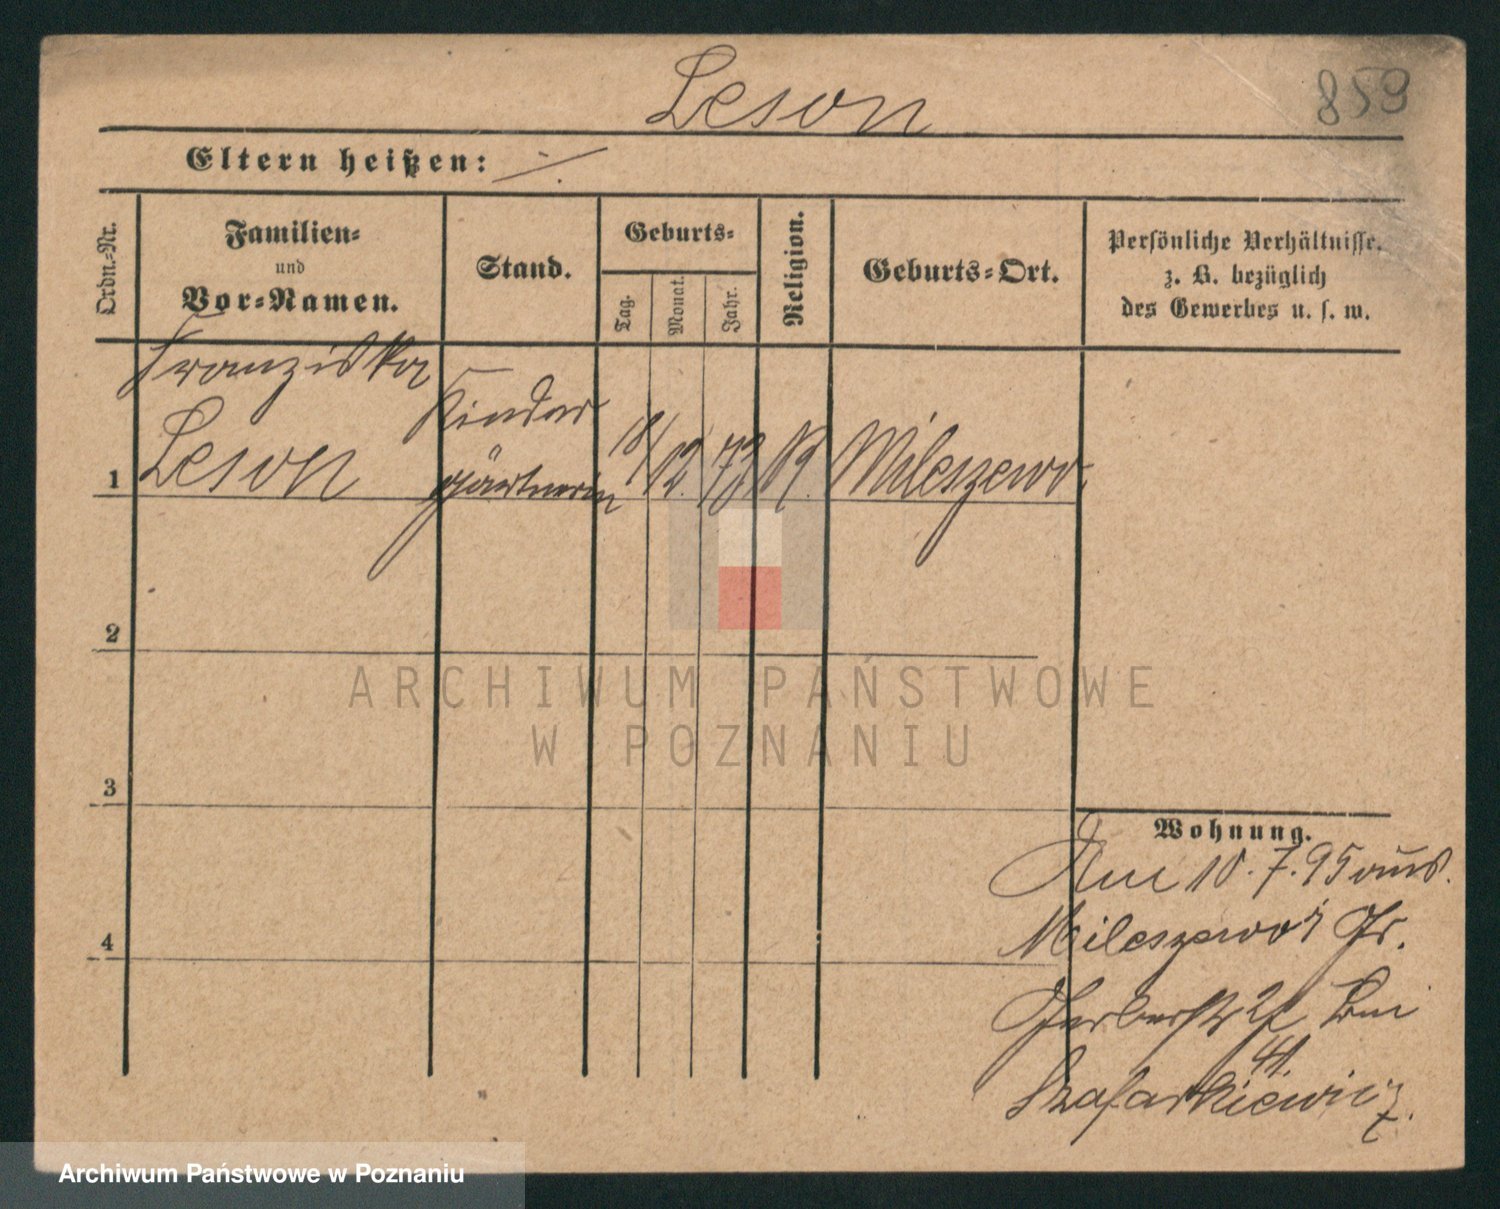 Leson
859
Eltern heißen: ./.
Ordn.-Nr.
Familien-
und
Vor-Namen.
Stand.
Geburts-
Tag.
Monat.
Jahr.
Religion.
Geburts-Ort.
Persönliche Verhältnisse.
z. B. bezüglich
des Gewerbes u. s. w.
Franziska
Leson
Kinder
gärtnerin
1
18/
12.
73
Mileszewo
2
3
4
ARCHIWUM PAŃSTWOWE
W POZNANIU
Wohnung.
Am 10.7.95 aus
Mileszewo, Gr.
Gerberstr 21 bei
41.
Szafarkiewicz.
Archiwum Państwowe w Poznaniu